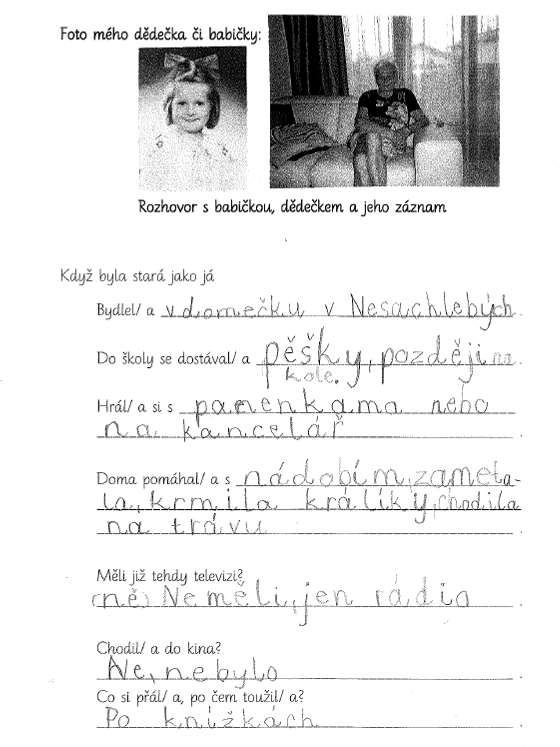 Foto mého dědečka či babičky:
Rozhovor s babičkou, dědečkem a jeho záznam
Když byla stará jako já
Bydlel/ a v domečku v Nesachlebých.
Do školy se dostával/ a pěšky, později na
kole.
Hrál/ a si s panenkama nebo
na kancelář.
Doma pomáhal/ a s nádobím, zameta-
la, krmila králíky, chodila
na trávu.
Měli již tehdy televizi?
(ně) Neměli, jen rádio.
Chodil/ a do kina?
Ne, nebylo.
Co si přál/ a, po čem toužil/ a?
Po knížkách.